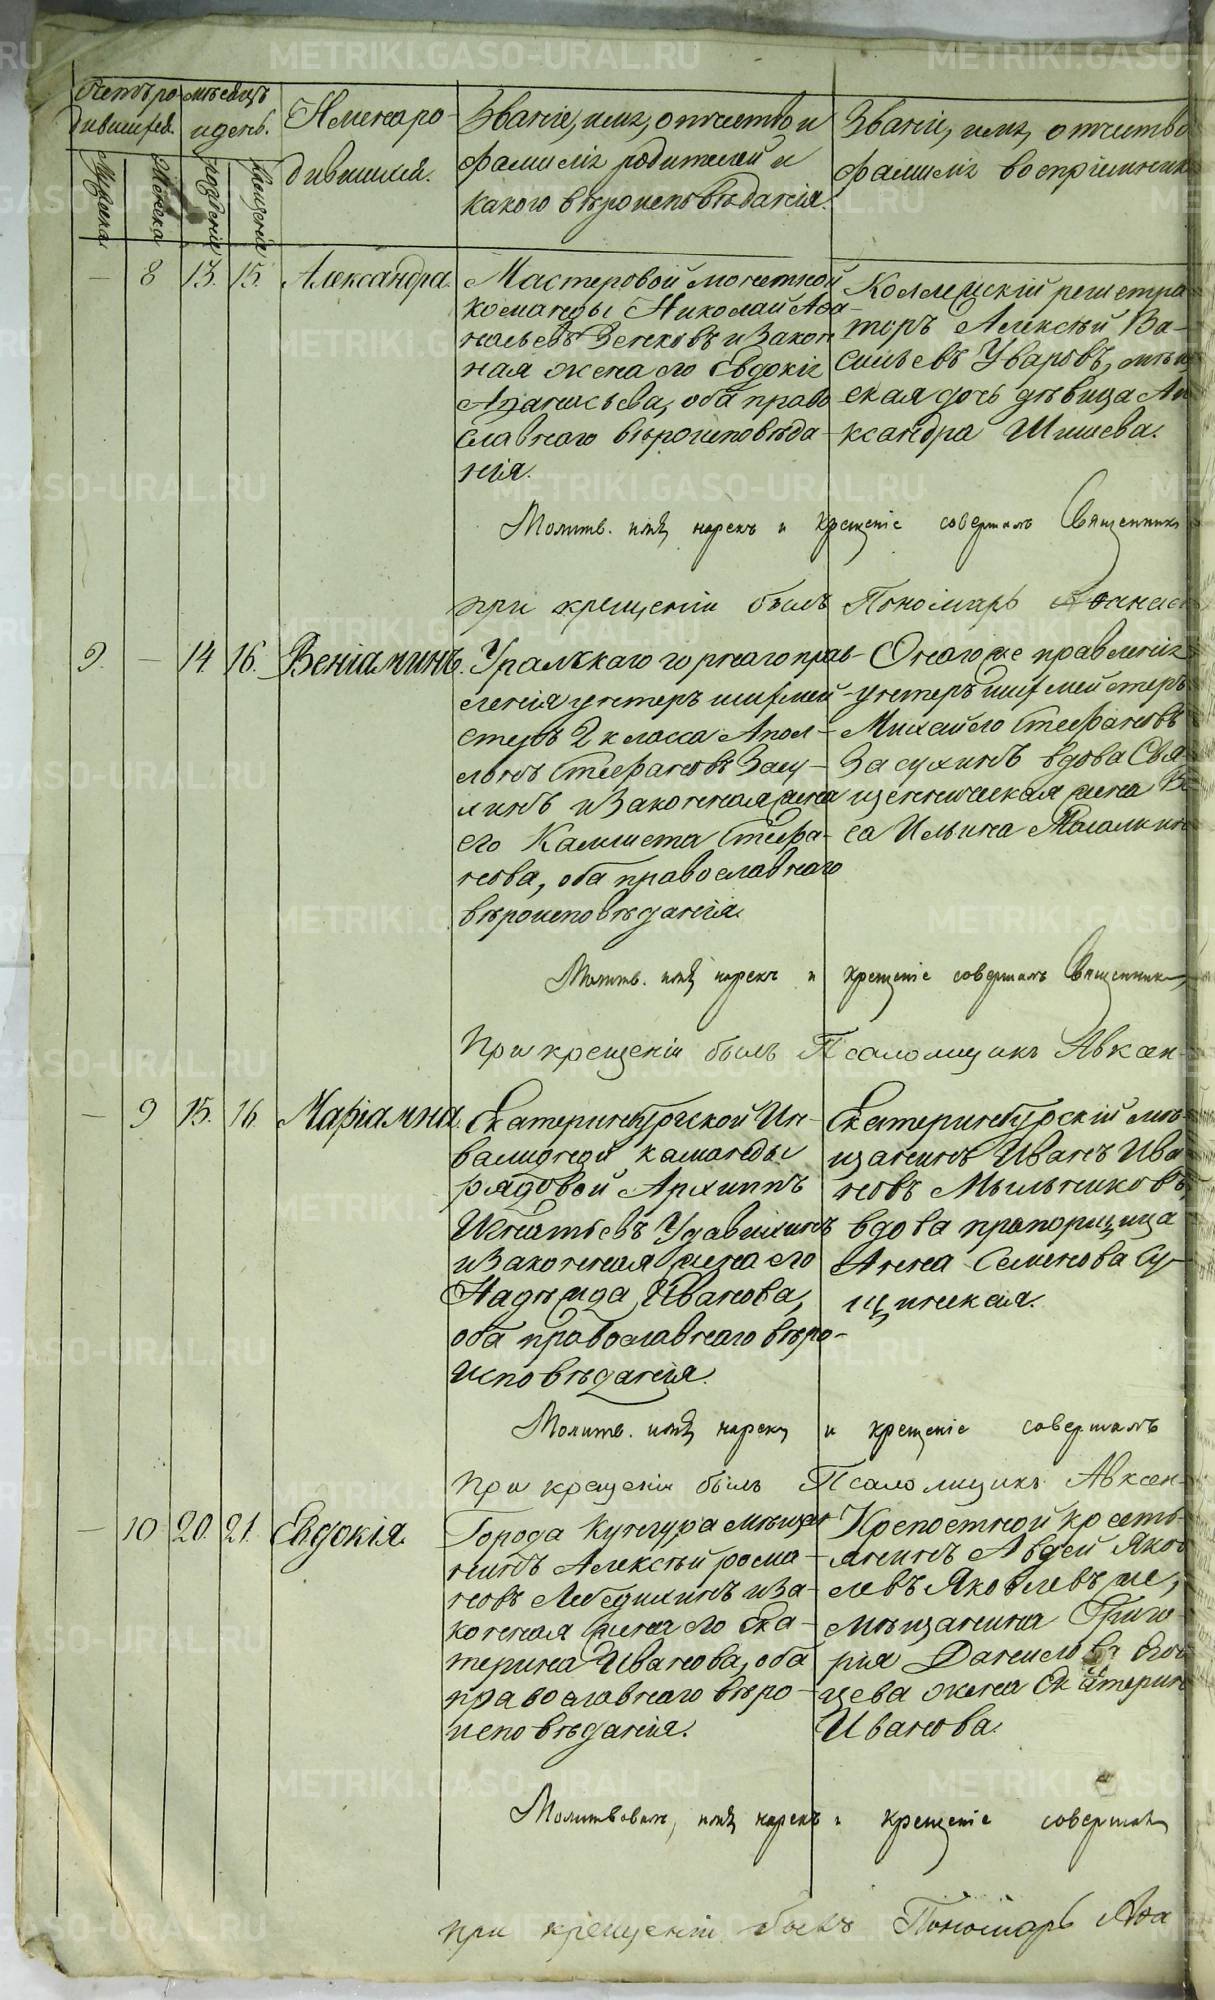 Счетъ ро-
дившихся.
Мужеска
Женска
мѣсяцъ
и день.
рожденія
крещенія
Имена ро-
дившихся.
Званіе, имя, отчество и
фамилія родителей и
какого вѣроисповѣданія.
Званіе, имя, отчество
фамилія воспріемник
— 8 13. 15. Александра.
Мастеровой монетной
команды Николай Аѳа-
насьевъ Зенковъ и закон
ная жена его Евдокія
Афанасьева, оба право
славнаго вѣроисповѣда-
нія.
Коллежскій регистра
торъ Алексѣй Ва-
сильевъ Уваровъ, мѣщ
ская дочь дѣвица Ал
ксандра Шишева.
Молитв. имя нарекъ и крещеніе совершалъ Священникъ
при крещеніи былъ Пономарь Аѳанас
9. — 14 16. Веніаминъ.
Уральскаго горнаго прав-
ленія унтеръ шихтмей-
стеръ 2 класса Апол-
лонъ Стефановъ Засу-
хинъ и законная жена
его Калиста Стефа-
нова, оба православнаго
вѣроисповѣданія.
Онагоже правленія
унтеръ шихтмейстеръ
Михайло Стефановъ
Засухинъ вдова Свя-
щенническая жена
са Ильина
Молитв. имя нарекъ и крещеніе совершалъ Священникъ,
При крещеніи былъ Псаломщикъ Авксен-
— 9 15. 16. Маріамна.
Екатеринбургской Ин-
валидной каманды
рядовой Архиппъ
Игнатьевъ Удавихинъ
и законная жена его
Надежда Иванова,
оба православнаго вѣро-
исповѣданія.
Екатеринбургскій мѣ-
щанинъ Иванъ Ива
новъ Мыльниковъ
вдова прапорщица
Анна Семенова Су-
щинская.
Молитв. имя нарекъ и крещеніе совершалъ
При крещеніи былъ Псаломщикъ Авксен-
— 10 20. 21. Евдокія.
Города Кунгура мѣщан
нинъ Алексѣй Рома-
новъ Лебедихинъ и за-
конная жена его Ека-
терина Иванова, оба
православнаго вѣро-
исповѣданія.
Крепостной кресть-
янинъ Авдей Яков
левъ Яковлевъ же,
мѣщанина Григо-
рія Данилова
цева жена Екатерин
Иванова.
Молитвовалъ, имя нарекъ и крещеніе совершалъ
при крещеніи былъ Пономарь Аѳа